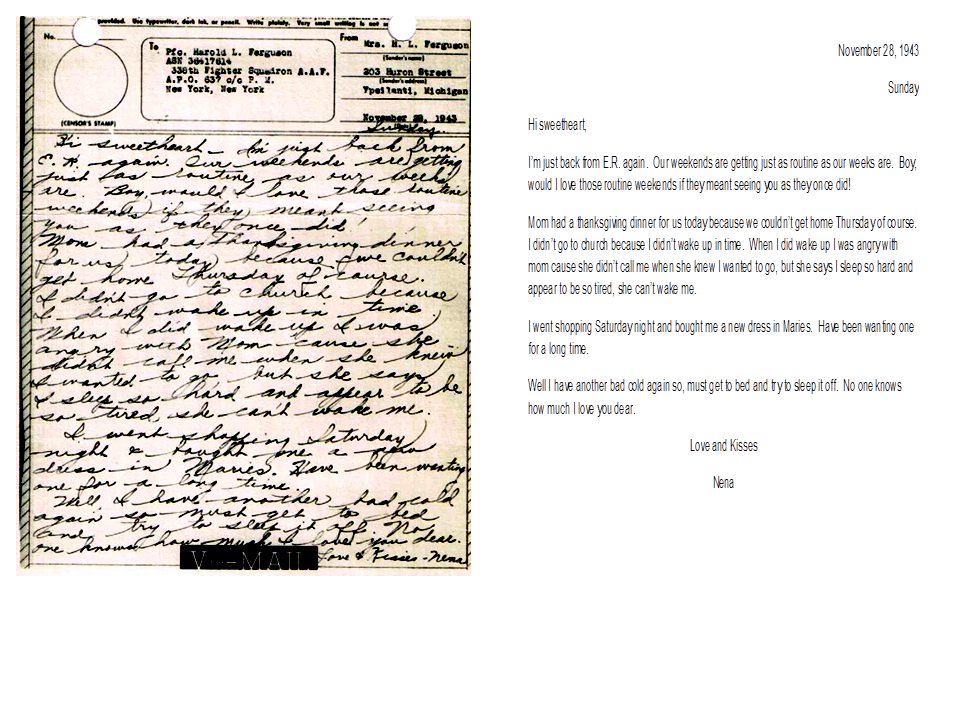 provided. Use typewriter, dark ink, or pencil. Write plainly. Very small writing is not
No.
(CENSOR'S STAMP)
To
Pfc. Harold L. Ferguson
ASN 36417614
338th Fighter Squadron A.A.F.
A.P.O. 637 c/o P. M.
New York, New York
From
Mrs. H. L. Ferguson
(Sender's name)
203 Huron Street
(Sender's address)
Ypsilanti, Michigan
November 28, 1943
Sunday
Hi sweetheart - Im just back from
E. R. again. Our weekends are getting
just as routine as our weeks
are. Boy, would I love those routine
weekends if they meant seeing
you as they once did!
Mom had a thanksgiving dinner
for us today because we couldn't
get home Thursday of course.
I didn't go to church because
I didn't wake up in time
When I did wake up I was
angry with Mom cause she
didn't call me when she knew
I wanted to go, but she says
I sleep so hard and appear to be
so tired, she can't wake me.
I went shopping Saturday
night & bought me a new
dress in Maries. Have been wanting
one for a long time.
Well I have another bad cold
again so must get to bed
and try to sleep it off. No
one knows how much I love you dear.
Love & Kisses - Nena
V...-MAIL
November 28, 1943
Sunday
Hi sweetheart,
I'm just back from E.R. again. Our weekends are getting just as routine as our weeks are. Boy,
would I love those routine weekends if they meant seeing you as they once did!
Mom had a thanksgiving dinner for us today because we couldn't get home Thursday of course.
I didn't go to church because I didn't wake up in time. When I did wake up I was angry with
mom cause she didn't call me when she knew I wanted to go, but she says I sleep so hard and
appear to be so tired, she can't wake me.
I went shopping Saturday night and bought me a new dress in Maries. Have been wanting one
for a long time.
Well I have another bad cold again so, must get to bed and try to sleep it off. No one knows
how much I love you dear.
Love and Kisses
Nena